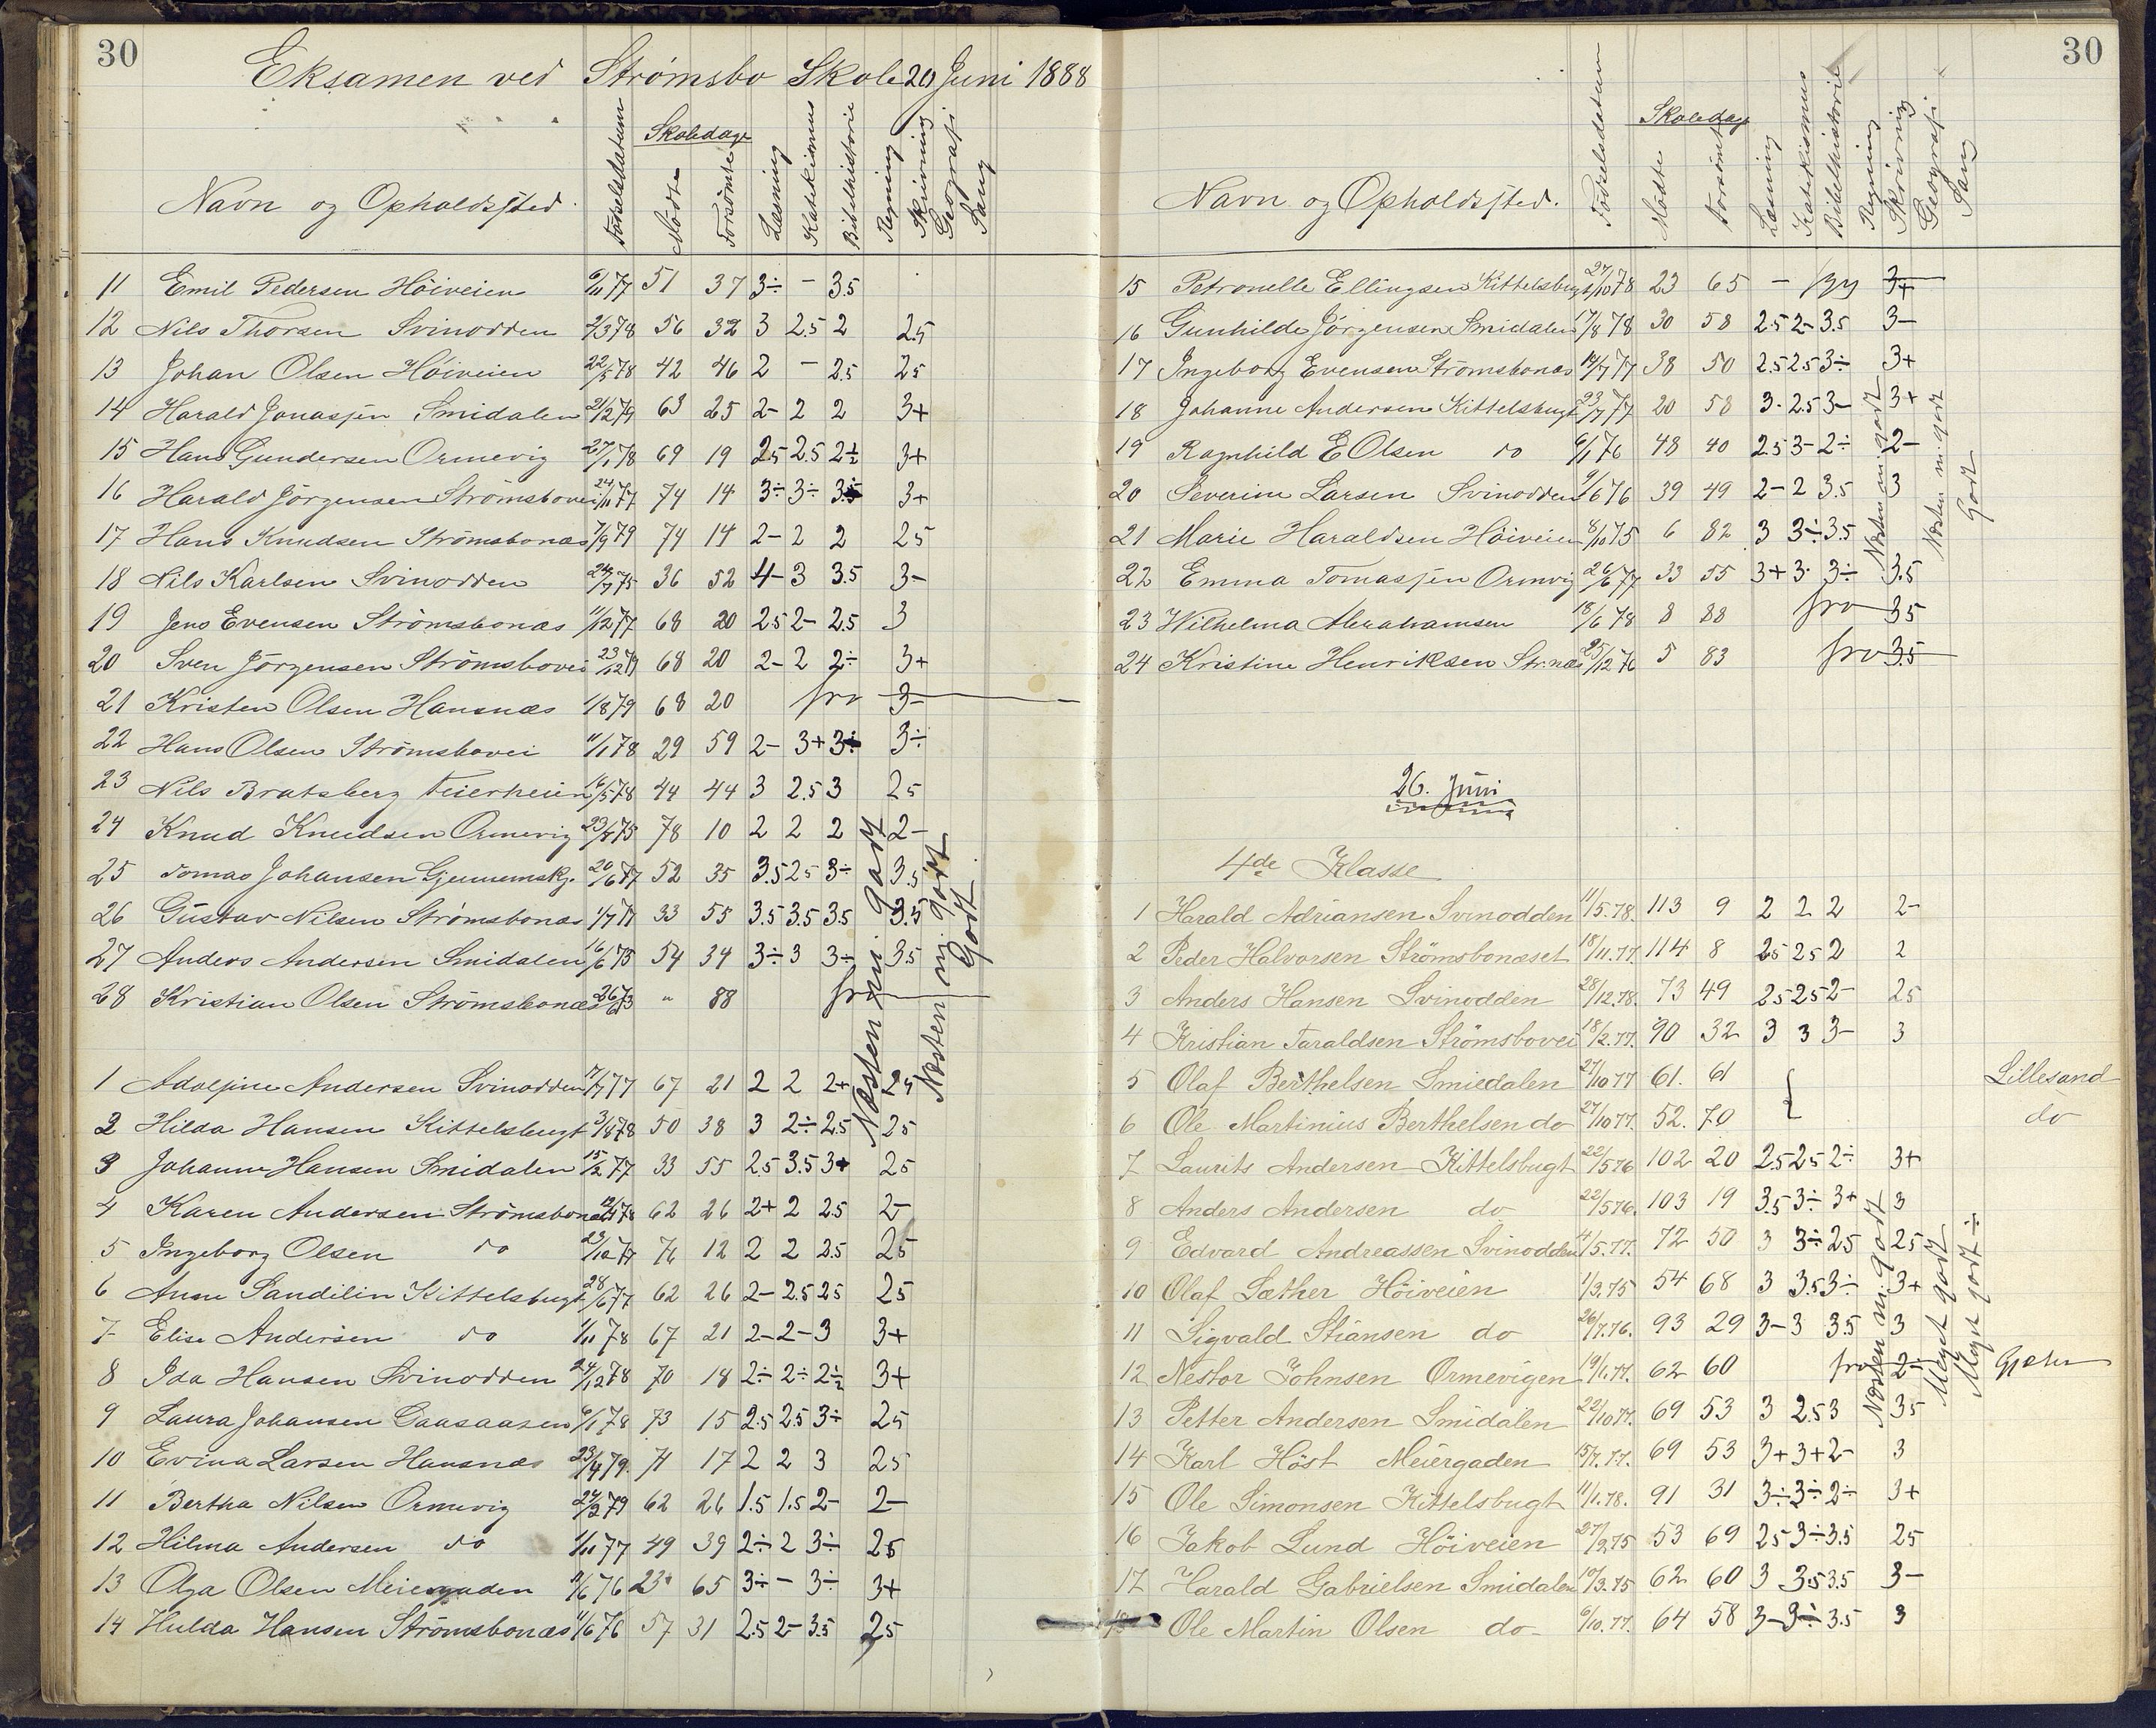 30
Eksamen ved Strømsbo Skole 20 Juni 1888
Navn og Opholdssted. Fødselsdatum Skoledage Mødte Forsömte Læsning Katekismus Bibelhistorie Regning Skrivning Geografi Sang
11 Emil Pedersen Höiveien 6/11 77 51 37 3÷ - 3.5
12 Nils Thorsen Svinodden 2/3 78 56 32 3 2.5 2 2.5
13 Johan Olsen Höiveien 22/5 78 42 46 2 - 2.5 25
14 Harald Jonassen Smidalen 21/2 79 63 25 2- 2 2 3+
15 Hans Gundersen Ormevig 27/1 78 69 19 2.5 2.5 2÷ 3+
16 Harald Jörgensen Strömsbovei 24/11 77 74 14 3÷ 3÷ 3÷ 3+
17 Hans Knudsen Strömsbonæs 7/9 79 74 14 2- 2 2 25
18 Nils Karlsen Svinodden 24/7 75 36 52 4- 3 3.5 3-
19 Jens Evensen Strömsbonæs 11/12 77 68 20 2.5 2- 2.5 3
20 Sven Jörgensen Strömsbovei 23/12 79 68 20 2- 2 2÷ 3+
21 Kristen Olsen Hansnæs 1/8 79 68 20 frv 3-
22 Hans Olsen Strömsbovei 11/1 78 29 59 2- 3+ 3÷ 3÷
23 Nils Bratsberg Feierheien 16/5 78 44 44 3 2.5 3 25
24 Knud Knudsen Ormevig 23/8 75 78 10 2 2 2 2-
25 Tomas Johansen Gjennemskj. 20/6 77 52 35 3.5 25 3÷ 3.5
26 Gustav Nilsen Strømsbonæs 1/7 77 33 55 3.5 3.5 3.5 3.5
27 Anders Andersen Smidalen 16/6 75 54 34 3÷ 3 3÷ 3.5
28 Kristian Olsen Strömsbonæs 26/6 73 " 88 frv
Næsten m. godt
Næsten m. godt
Godt
1 Adolfine Andersen Svinodden 17/7 77 67 21 2 2 2+ 25
2 Hilda Hansen Kittelsbugt 3/8 78 50 38 3 2÷ 2.5 25
3 Johanne Hansen Smidalen 15/2 77 33 55 2.5 3.5 3+ 25
4 Karen Andersen Strömsbonæs 12/4 78 62 26 2+ 2 2.5 2-
5 Ingeborg Olsen do 23/10 77 76 12 2 2 2.5 25
6 Anne Sandilin Kittelsbugt 28/6 77 62 26 2- 2.5 25 25
7 Elise Andersen do 1/11 78 67 21 2- 2- 3 3+
8 Ida Hansen Svinodden 24/12 78 70 18 2÷ 2÷ 2÷ 3+
9 Laura Johansen Gaasaasen 6/1 78 73 15 2.5 2.5 3÷ 25
10 Evina Larsen Hansnæs 23/4 79. 71 17 2 2 3 25
11 Bertha Nilsen Ormevig 24/2 79 62 26 1.5 1.5 2- 2-
12 Hilma Andersen do 1/11 77 49 39 2÷ 2 3÷ 25
13 Olga Olsen Meiergaden 11/6 76 23 65 3÷ - 3÷ 3+
14 Hulda Hansen Strömsbonæs 11/6 76 57 31 2.5 2- 3.5 25
30
Navn og Opholdssted. Fødselsdatum Skoledag Mødte Forsömt Læsning Katekismus Bibelhistorie Regning Skrivning Geografi Sang
15 Petronelle Ellingsen Kittelsbugt 27/10 78 23 65 - 3+
16 Gunhilde Jörgensen Smidalen 17/8 78 30 58 2.5 2- 3.5 3-
17 Ingeborg Evensen Strömsbonæs 14/7 77 38 50 2.5 2.5 3÷ 3+
18 Johanne Andersen Kittelsbugt 23/7 77 20 58 3- 2.5 3- 3+
19 Ragnhild E Olsen do 6/1 76 48 40 2.5 3- 2÷ 2-
20 Severine Larsen Svinodden 9/6 76 39 49 2- 2 3.5 3
21 Marie Haraldsen Höiveien 8/10 75 6 82 3 3÷ 3.5
22 Emma Tomassen Ormvig 26/6 77 33 55 3+ 3- 3÷ 3.5
23 Wilhelma Abrahamsen 18/6 78 8 88 frv 35
24 Kristine Henriksen Str.næs 25/12 76 5 83 frv 3.5
Næsten m. godt
Næsten m. godt
Godt
26. Juni
4de Klasse
1 Harald Adriansen Svinodden 11/5.78. 113 9 2 2 2 2-
2 Peder Halvorsen Strömsbonæset 18/11.77. 114 8 25 25 2 2
3 Anders Hansen Svinodden 28/12.78. 73 49 25 25 2- 25
4 Kristian Taraldsen Strömsbovei 18/2.77. 90 32 3 3 3- 3
5 Olaf Berthelsen Smiedalen 27/10 77 61. 61 Lillesand
6 Ole Martinius Berthelsen do 27/10 77. 52. 70 do
7 Laurits Andersen Kittelsbugt 22/5 76 102 20 2.5 25 2÷ 3+
8 Anders Andersen do 22/5 76. 103 19 3.5 3÷ 3+ 3
9 Edvard Andreassen Svinodden 4/5.77. 72 50 3 3÷ 25 25
10 Olaf Sæther Höiveien 1/3.75 54 68 3 3.5 3÷ 3+
11 Sigvald Stiansen do 26/7.76. 93 29 3- 3 3.5 3
12 Nestor Johnsen Ormevigen 19/1.77. 62 60 frv 2÷
13 Petter Andersen Smidalen 22/10 77. 69 53 3 2.5 3 35
14 Karl Höst Meiergaden 15/7.77. 69 53 3+ 3+ 2- 3
15 Ole Simonsen Kittelsbugt 11/1.78. 91 31 3÷ 3÷ 2÷ 3+
16 Jakob Lund Höiveien 27/2 75 53 69 25 3÷ 3.5 25
17 Harald Gabrielsen Smidalen 10/3.75 62 60 3 3.5 3.5 3-
Ole Martin Olsen do 6/10.77. 64 58 3- 3÷ 3.5 3
Næsten m. godt
Meget godt
Meget godt ÷